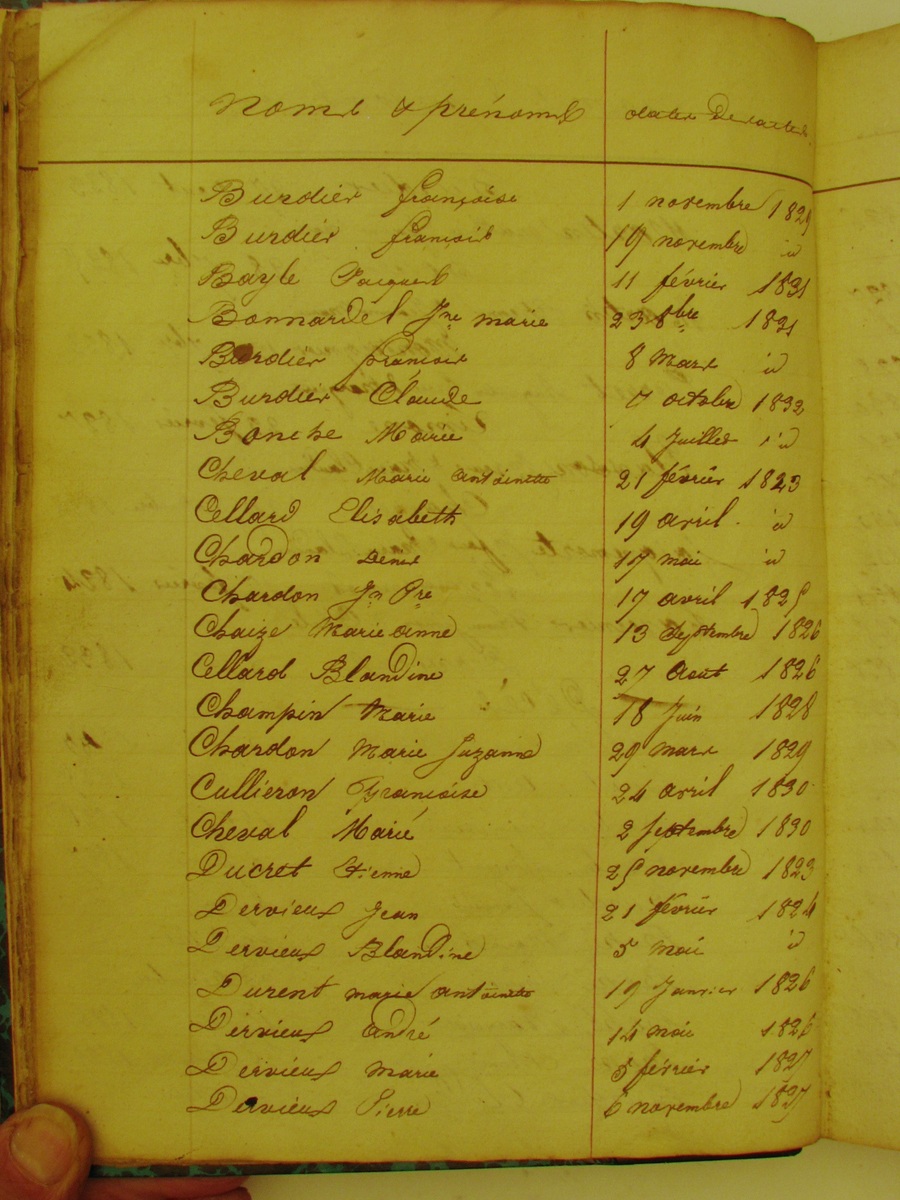 Noms & prénoms dates de actes
Burdier françoise 1 novembre 1829
Burdier françois 19 novembre id
Bayle Jacques 11 février 1831
Bonnardel Jne marie 23 8bre 1831
Burdier françois 8 Mars id
Burdier Claude 7 octobre 1832
Bonche Marie 4 Juillet id
Cheval Marie antoinette 21 février 1823
Cellard Elisabeth 19 avril id
Chardon Denis 17 mai id
Chardon Jn Pre 17 avril 1825
Chaize Marie anne 13 Septembre 1826
Cellard Blandine 27 Aout 1826
Champin Marie 18 Juin 1828
Chardon Marie Suzanne 29 mars 1829
Cullieron Françoise 24 avril 1830
Cheval Marie 2 Septembre 1830
Ducret Etienne 25 novembre 1823
Dervieux Jean 21 février 1824
Dervieux Blandine 5 mai id
Durent marie antoinette 19 Janvier 1826
Dervieux andré 14 mai 1826
Dervieux Marie 5 février 1827
Dervieux Pierre 6 novembre 1827